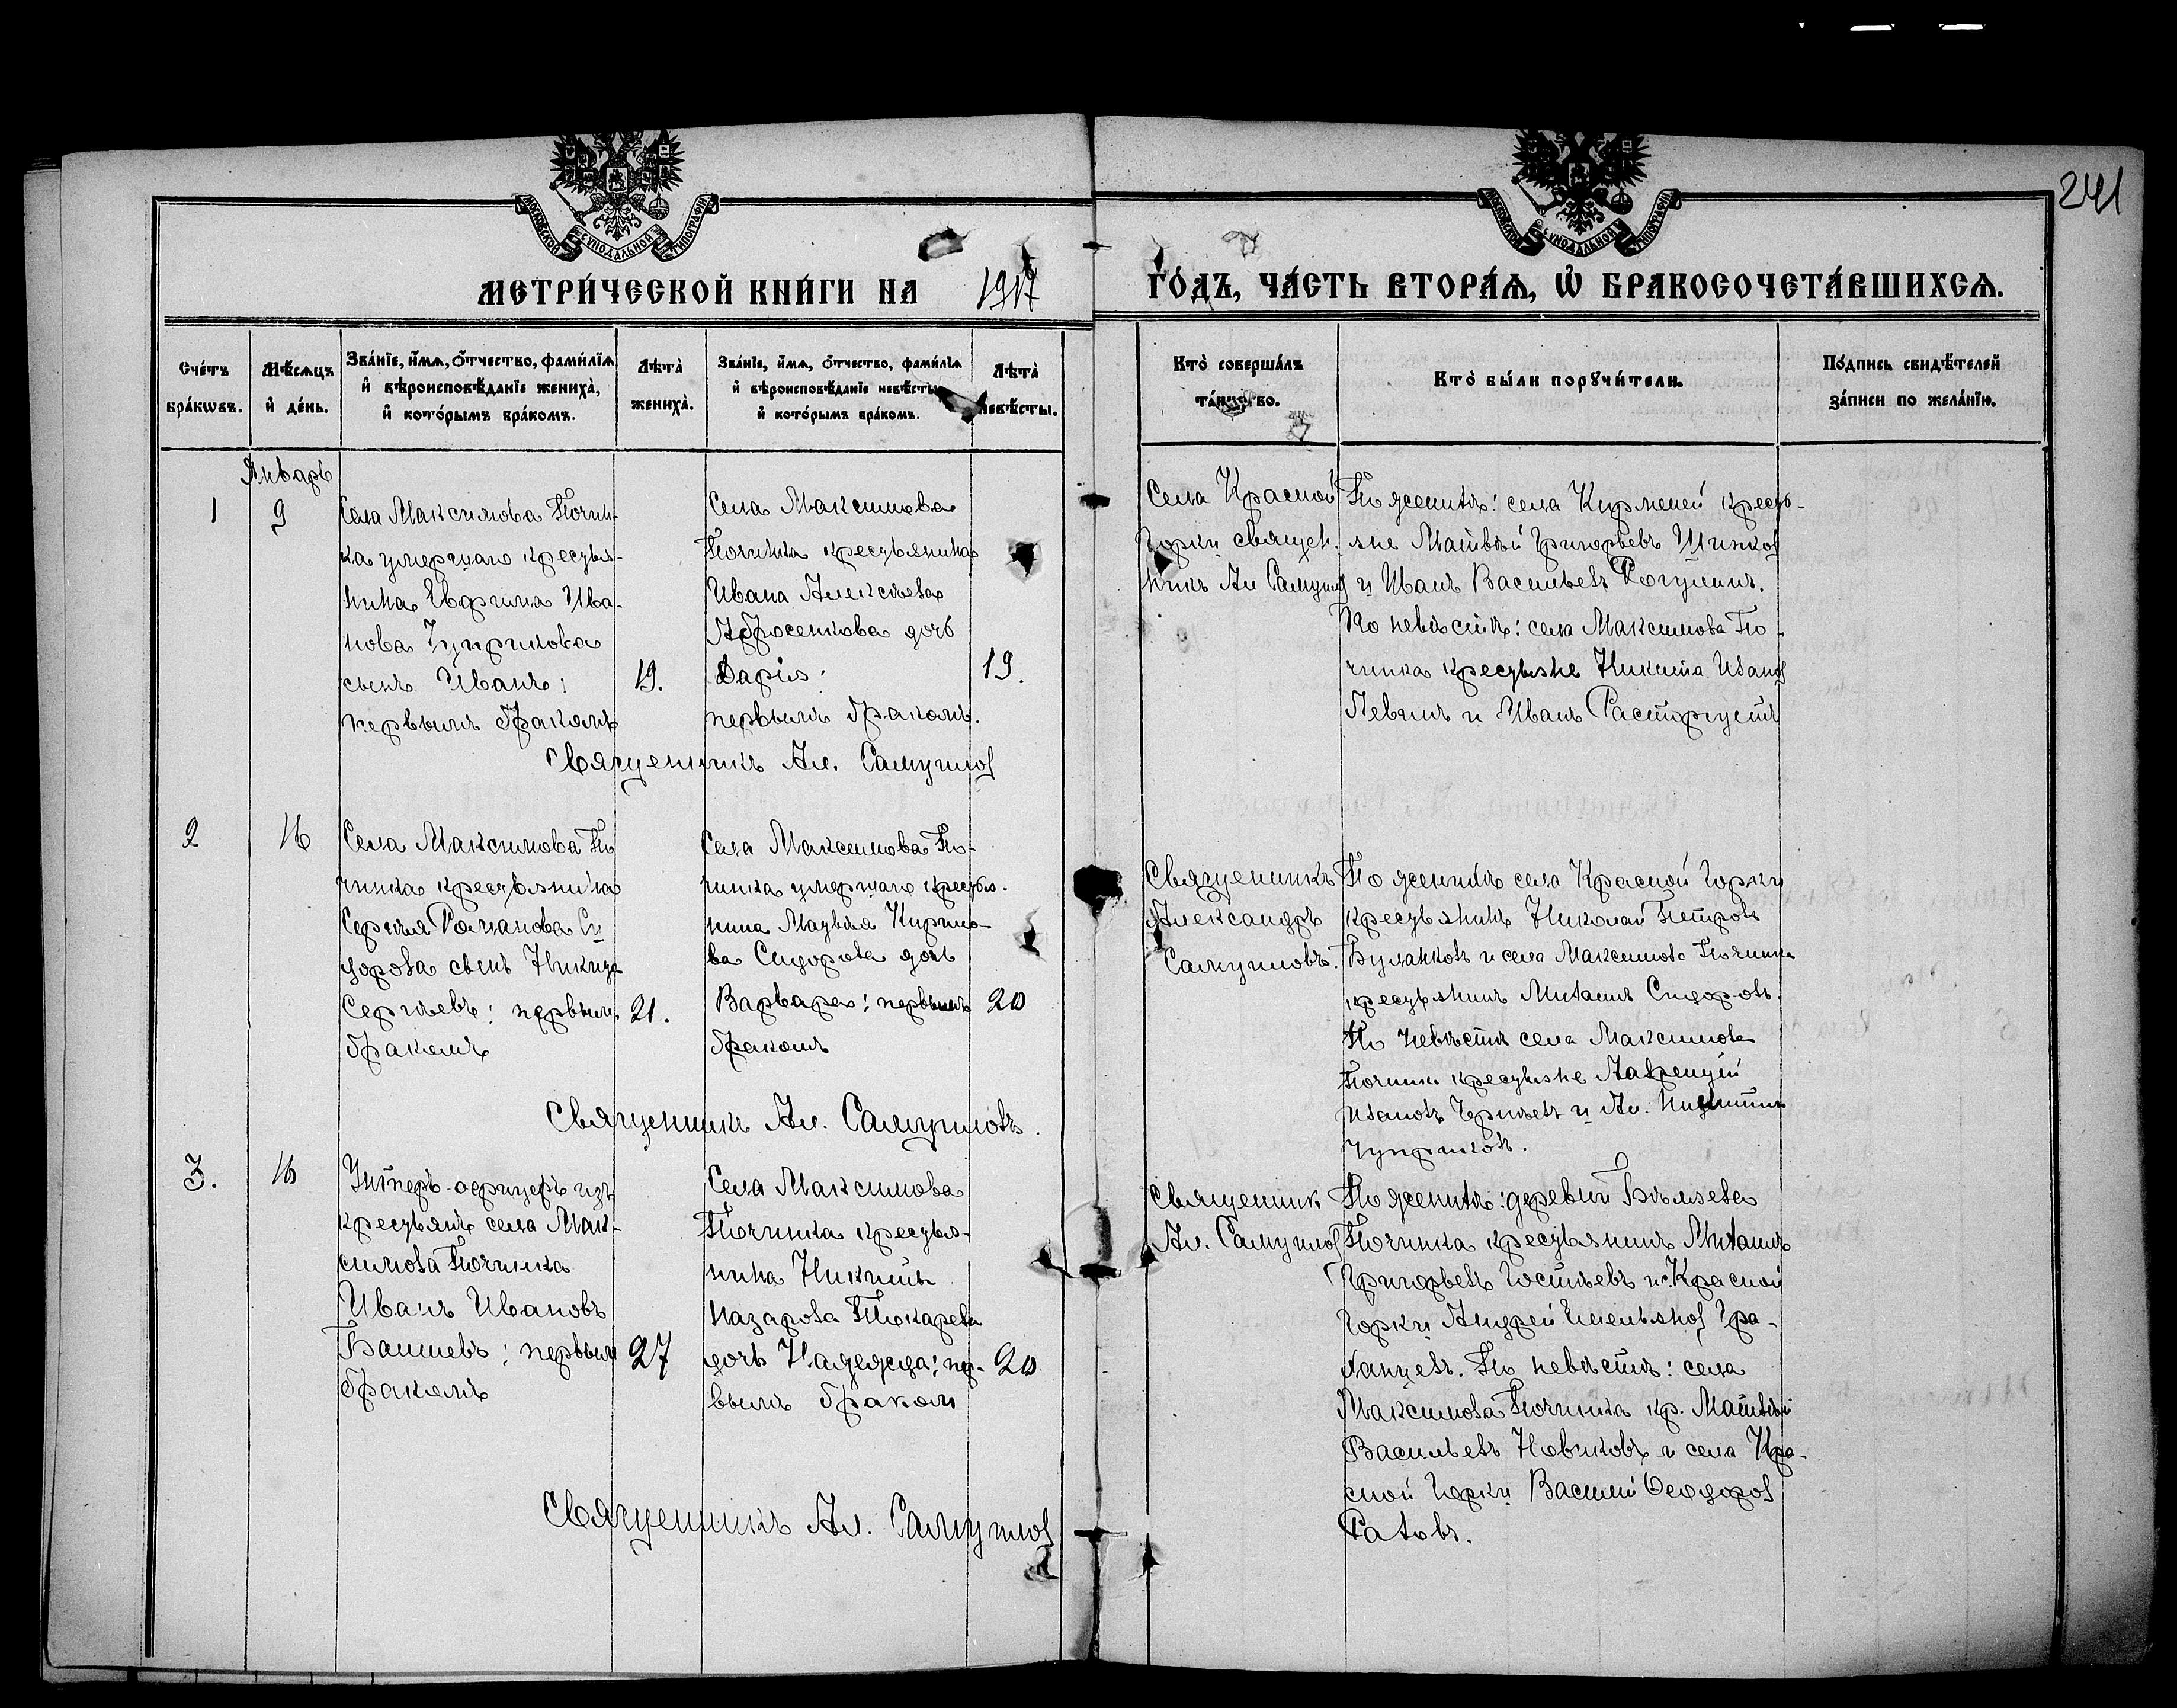 241
МОСКОВСКОЙ СѴНОДАЛЬНОЙ ТИПОГРАФІИ
МОСКОВСКОЙ СѴНОДАЛЬНОЙ ТИПОГРАФІИ
МЕТРИ́ЧЕСКОЙ КНИ́ГИ НА 1917 ГО́ДЪ, ЧА́СТЬ ВТОРА́Ѧ, Ѡ҆ БРАКОСОЧЕТА́ВШИХСѦ.
Сче́тъ бра́кѡвъ.
Мѣ́сѧцъ и҆ де́нь.
Зва́нїе, и҆́мѧ, о҆́тчество, фами́лїѧ и҆ вѣроисповѣ́данїе жениха̀, и҆ кото́рымъ бра́комъ.
Лѣта̀ жениха̀.
Зва́нїе, и҆́мѧ, о҆́тчество, фами́лїѧ и҆ вѣроисповѣ́данїе невѣ́сты, и҆ кото́рымъ бра́комъ.
Лѣта̀ невѣ́сты.
Кто̀ соверша́лъ та́инство.
Кто̀ бы́ли порꙋчи́тели.
По́дпись свидѣ́телей за́писи по жела́нїю.
Январь
1
9
Села Максимова Почин-
ка умершаго крестья-
нина Ива-
нова Чуприкова
сынъ Иванъ;
первымъ бракомъ
19.
Села Максимова
Починка крестьянина
Ивана Алексѣева
Абросенкова дочь
Дарія;
первымъ бракомъ.
19.
Села Красной
Горки священ-
никъ Ал Самуилов
По женихѣ: села Кирменей кресть-
яне Матвѣй Григорьевъ
и Иванъ Васильевъ
По невѣстѣ: села Максимова По-
чинка крестьяне Никита Иванов
Левинъ и Иванъ
Священникъ Ал. Самуилов
2
16
Села Максимова По
чинка крестьянина
Сергѣя Романова Си
дорова сынъ Никита
Сергѣевъ; первымъ
бракомъ
21.
Села Максимова По-
чинка умершаго крестья-
нина Кирило-
ва Сидорова дочь
Варвара; первымъ
бракомъ
20
Священникъ
Александръ
Самуиловъ.
По женихѣ села Красной Горки
крестьянинъ Николай Петровъ
Буланковъ и села Максимова Починка
крестьянинъ Михаилъ Сидоровъ.
По невѣстѣ села Максимова
Починка крестьяне Лаврентій
Ивановъ и Ал.
Чуприковъ.
Священникъ Ал. Самуиловъ.
3.
16
Унтеръ-офицеръ изъ
крестьянъ села Мак-
симова Починка
Иванъ Ивановъ
первым
бракомъ
27
Села Максимова
Починка крестья-
нина Никиты
Назарова Токарева
дочь Надежда; пер-
вымъ браком
20
Священник
Ал. Самуилов
По женихѣ: деревни Бѣляева
Починка крестьянинъ Михаилъ
Григорьевъ и с. Красной
Горки Андрей Емельянов Гра-
ханцевъ. По невѣстѣ: села
Максимова Починка кр. Матвѣй
Васильевъ Новиковъ и села Кра-
сной Горки Василій Ѳеодоров
Ратовъ.
Священникъ Ал. Самуилов